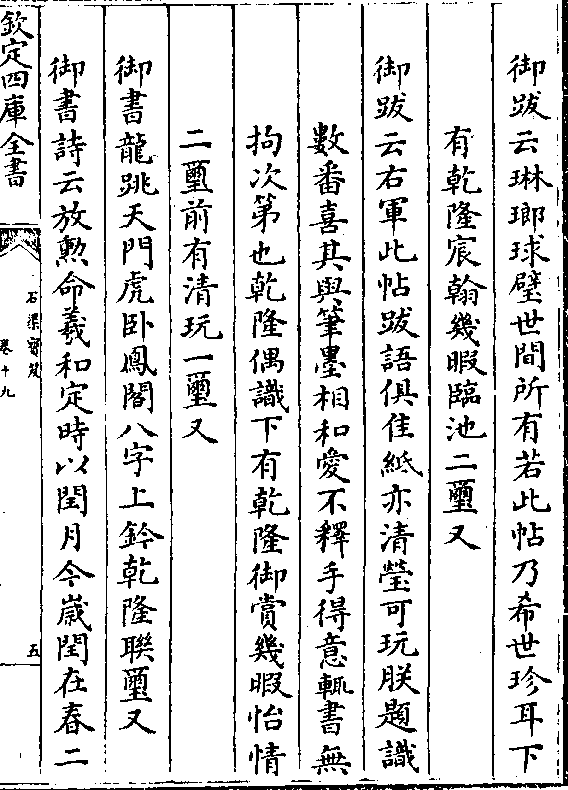 御跋云琳瑯球璧世間所有若此帖乃希世珍耳下
有乾隆宸翰幾暇臨池二璽又
御跋云右軍此帖跋語俱佳紙亦清瑩可玩朕題識
數番喜其與筆墨相和愛不釋手得意輒書無
拘次第也乾隆偶識下有乾隆御賞幾暇怡情
二璽前有清玩一璽又
御書龍跳天門虎卧鳳閣八字上鈐乾隆聯璽又
御書詩云放勲命羲和定時以閏月今嵗閏在春二
欽定四庫全書
石渠寳笈
卷十九
五